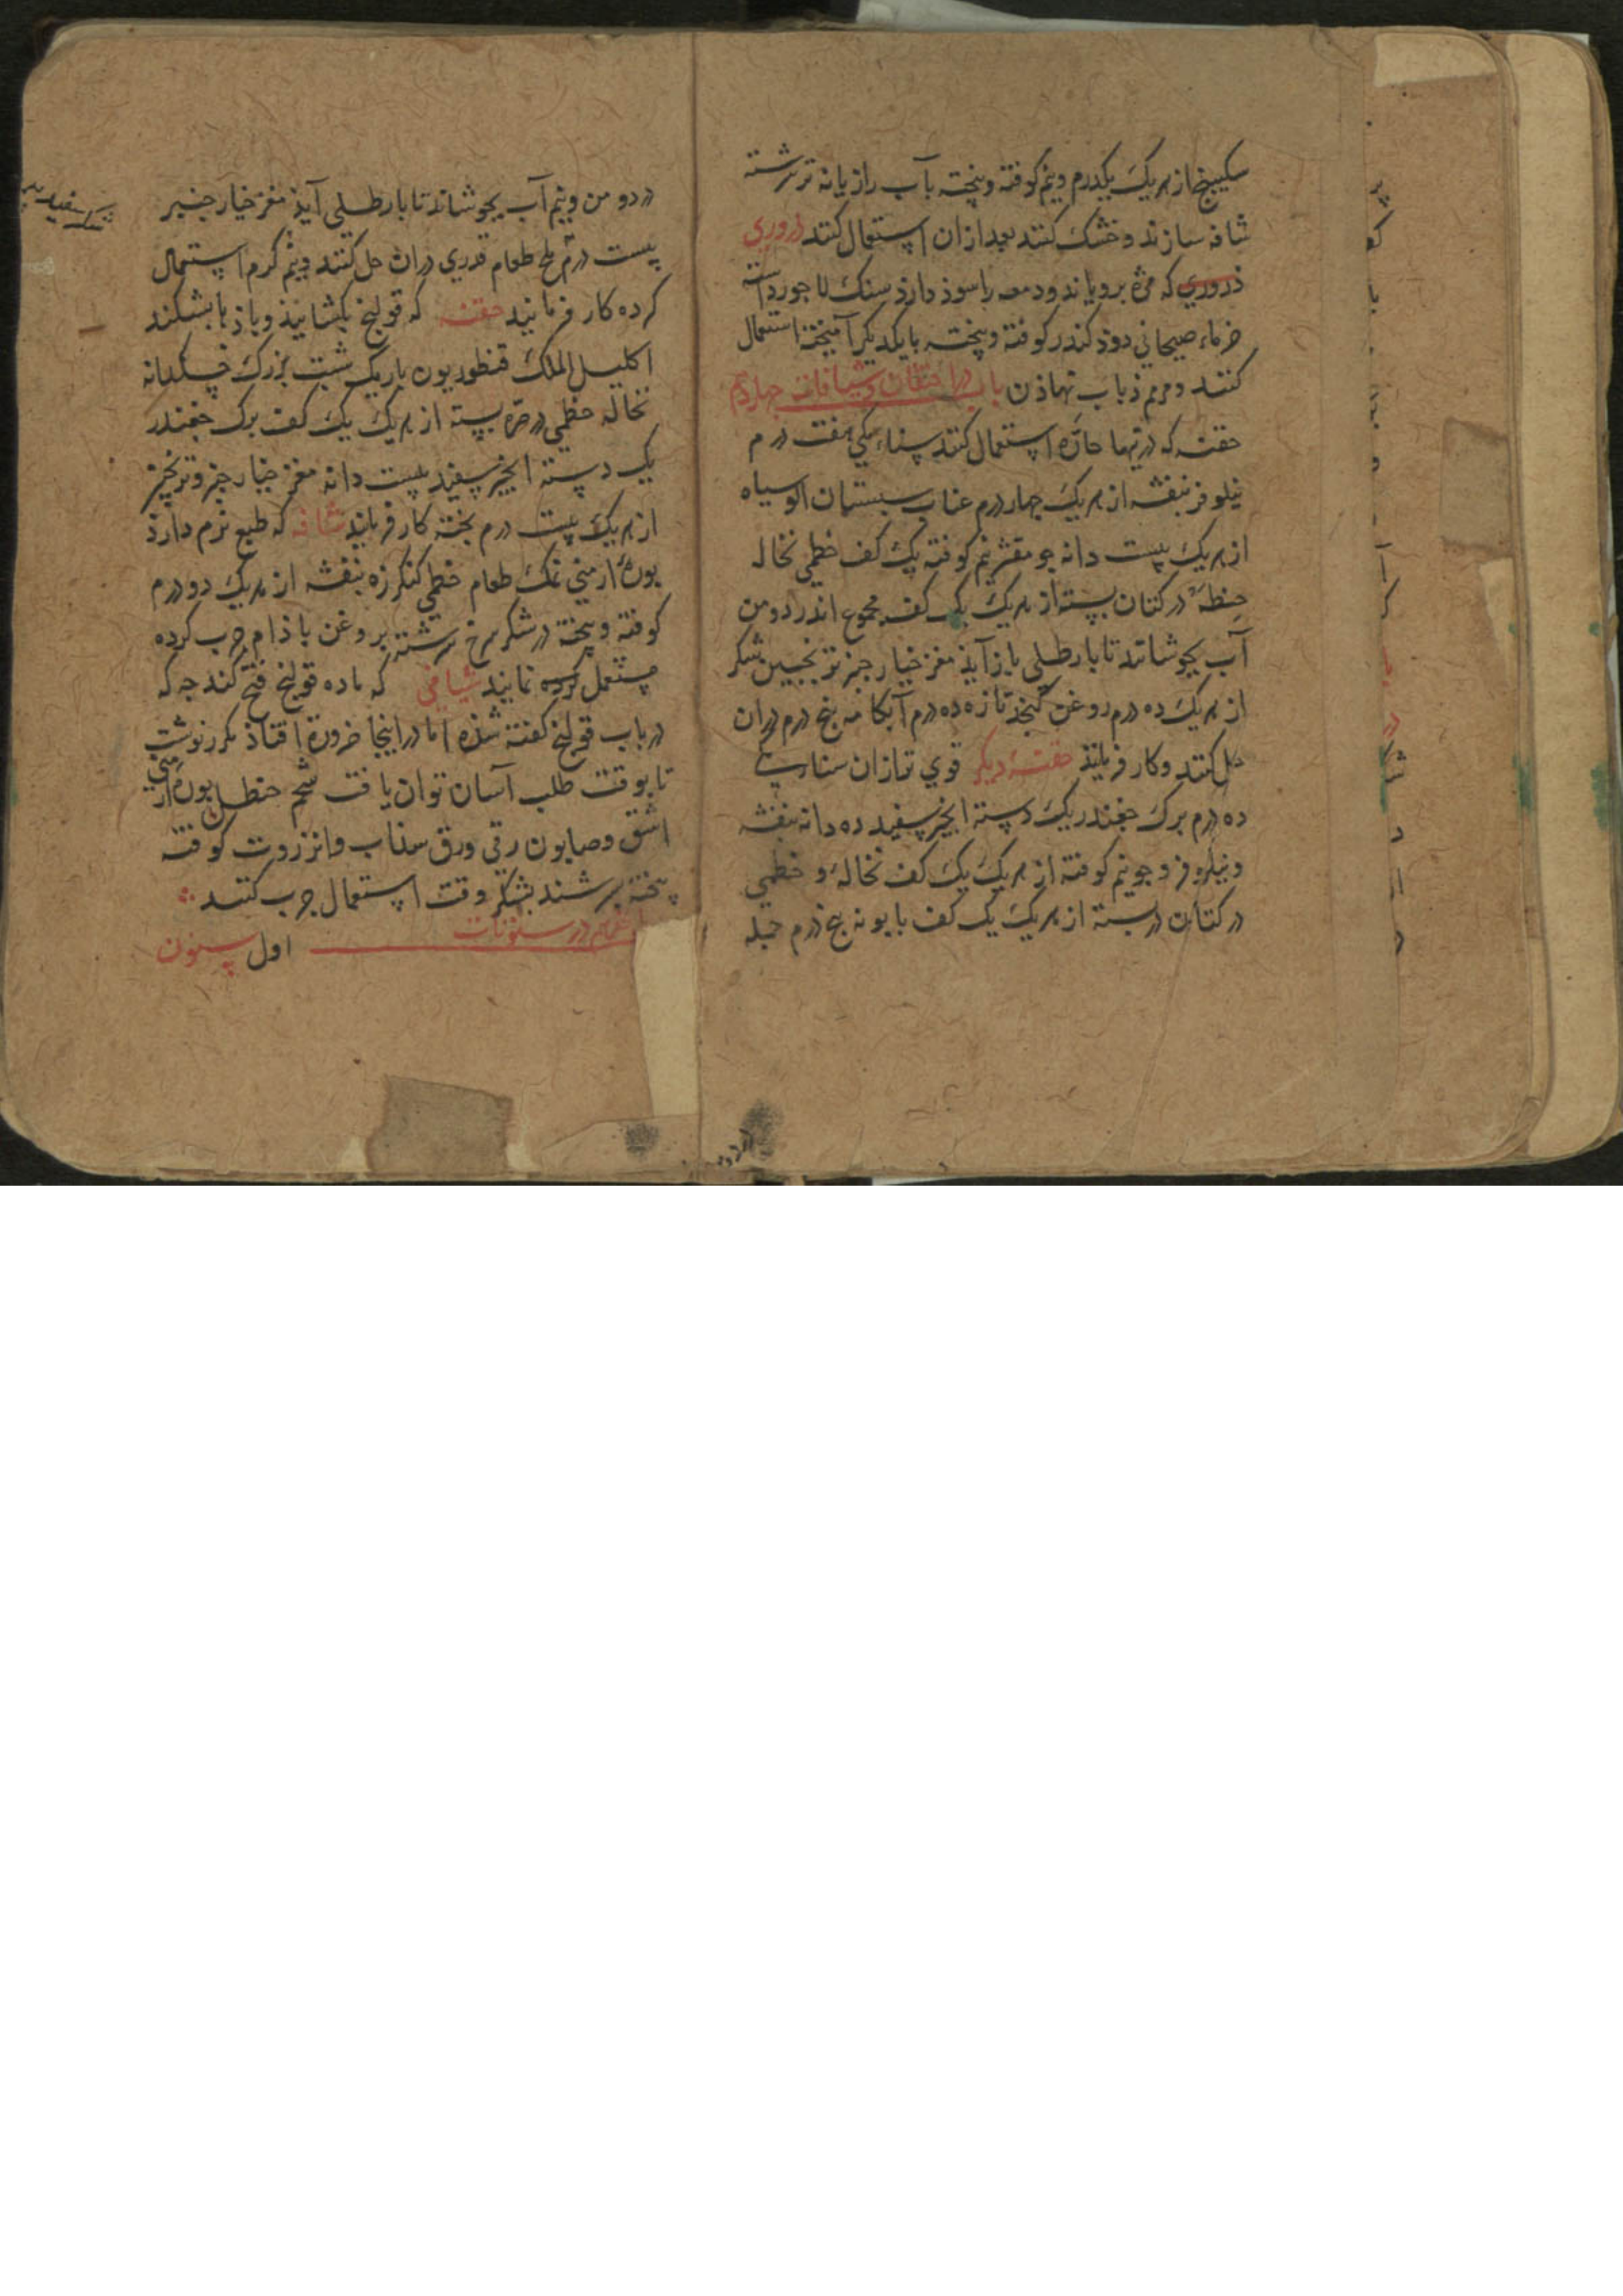 سکبینج از هر یک یکدرم و نیم کوفته و پخته بآب رازیانه تر سرشته
شافه سازند و خشک کنند بعد ازان استعمال کنند ذروری
ذروری که مژه برویاند و دمعه را سوذ دارذ سنک لاجورد استه
خرماء صیحانی دوذ کندر کوفته و پخته بایکدیکر آمیخته استعمال
کنند و مرهم ذباب نهاذن باب در احتقان و شیافات چهاردهم
حقنه که در تبها حاره استعمال کنند سناء مکی هفت درم
نیلوفر بنفشه از هر یک چهار درم عناب سبستان الو سیاه
از هر یک بیست دانه جو مقشر نیم کوفته یک کف خطمی نخاله
حنطه در کتان بسته از هر یک یک کف مجموع اندر دو من
آب بجوشانند تا بارطلی بازآیذ مغز خیار جنبر ترنجبین شکر
از هر یک ده درم روغن کنجذ تازه ده درم آبکامه پنج درم دران
حل کنند و کار فرمایند حقنه دیکر قوی تر ازان سنا
ده درم برک جغندر یک دسته انجیر سفید ده دانه بنفشه
و نیلوفر و جو نیم کوفته از هر یک یک کف نخاله و خطمی
در کتان بسته از هر یک یک کف بابونه پنج درم حبله
در دو من و نیم آب بجوشاند تا بارطلی آیذ مغز خیار جنبر
بیست درم ملح طعام قدری دران حل کنند و نیم کرم استعمال
کرده کار فرمایند حقنه که قولنج بکشایذ و باذها بشکند
اکلیل الملک قنطوریون باریک شبت بزرک خسکدانه
نخاله خطمی در صره بسته از هر یک یک کف برک جغندر
یک دسته انجیر سفید بیست دانه مغز خیار جنبر و ترنجبین
از هر یک بیست درم پخته کار فرمایند شافه که طبع نرم دارذ
بوره ارمنی نمک طعام خطمی کنکرزه بنفشه از هر یک دو درم
کوفته و پخته در شکر سرخ سرشته بروغن باذام چرب کرده
مستعمل کرده نمایند شیافی که ماده قولنج فتح کند چه که
در باب قولنج کفته شذه اما در اینجا ضرورة افتاذ مکرر نوشتن
تا بوقت طلب آسان توان یافت شحم حنظل بوره ارمنی
اشق و صابون رقی ورق سذاب و انزروت کوفته
پخته بر شند بشکر وقت استعمال چرب کنند
در سنونات اول سنون